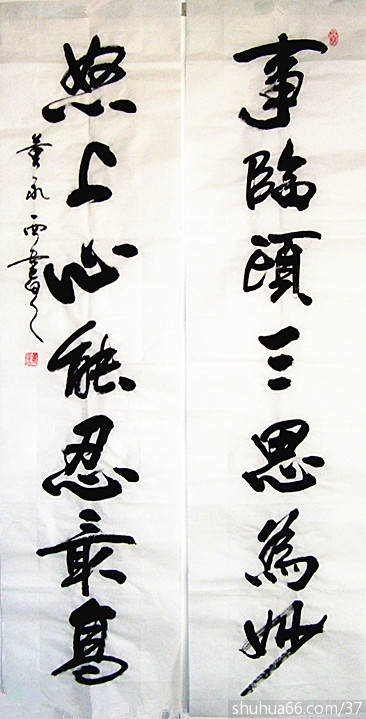 事临頭三思為妙
怒上心能忍最高
董永西書
shuhua66.com/37